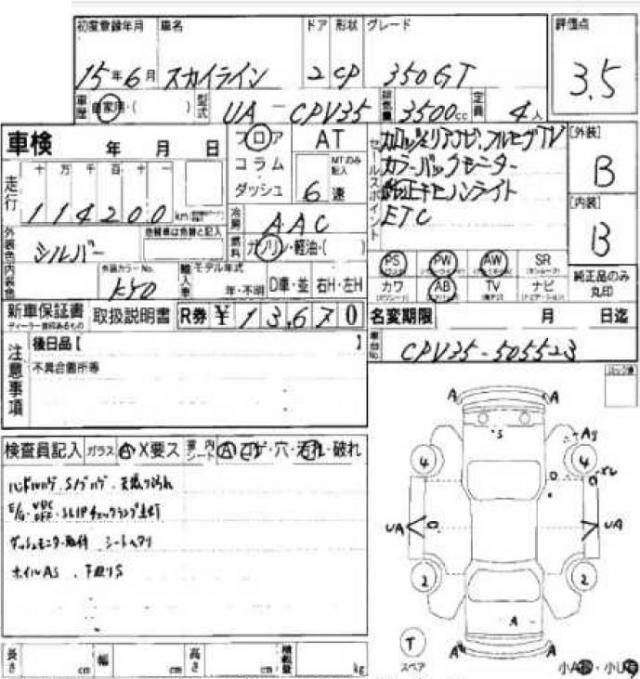 初度登録年月 車名 ドア 形状 グレード 評価点
15年6月 スカイライン 2 CP 350GT 3.5
車歴 自家用・( ) 型式 UA-CPV35 排気量 3500cc 定員 4人
車検 年 月 日
フロア
コラム
ダッシュ
AT
MTのみ記入
6速
セールスポイント
カロッツェリアナビ,フルセグTV
カラーバックモニター
純正キセノンライト
ETC
[外装]
B
[内装]
B
走行 十 万 千 百 十 一
114200 km
冷房 AAC
燃料 ガソリン・軽油・( )
外装色 シルバー 色替車は色替と記入
内装色 外装カラーNo. KY0
輸入車 モデル年式
年・不明 D車・並 右H・左H
PS PW AW SR
カワ AB TV ナビ
純正品のみ丸印
新車保証書 取扱説明書 R券 ¥13,670
ディーラー捺印あるもの
名変期限 月 日迄
車台No. CPV35-505523
注意事項
後日品【 】
不具合箇所等
検査員記入 ガラス A X要ス 内 シート A コゲ・穴・汚れ・破れ
ハンドルハゲ・Sノブハゲ・天張り汚れ
E/G・VDC OFF・SLIPチェックランプ点灯
ダッシュモニター取付 シートヘタリ
ホイルAS、下廻りS
A A
S
AS
4 4
UA UA
2 2
A
A A
T
スペア
長さ cm 幅 cm 高さ cm 積載量 kg